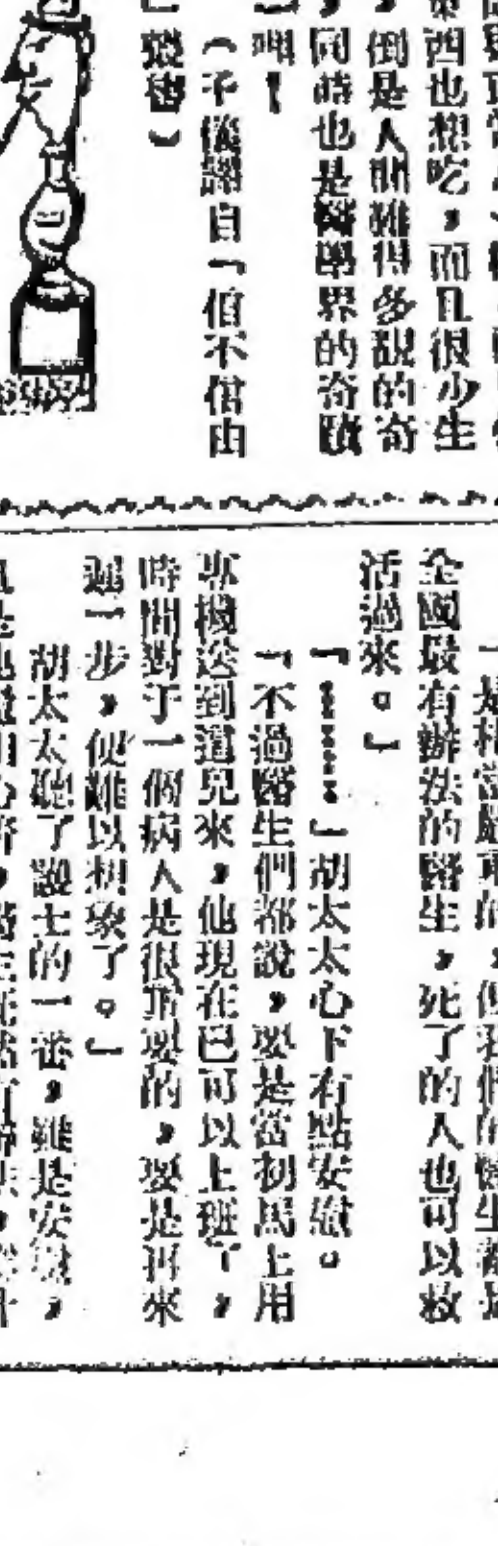 東西也想吃，而且很少生
，倒是人間難得多覩的奇
，同時也是醫學界的奇蹟
「呷！
（不儀譯自「信不信由
」雙週）
「是相當嚴重的，但我們的醫生都是
全國最有辦法的醫生，死了的人也可以救
活過來。」
「………」胡太太心下有點安慰。
「不過醫生們都說，要是當初馬上用
專機送到這兒來，他現在已可以上班了，
時間對于一個病人是很重要的，要是再來
遲一步，便難以想象了。」
胡太太聽了護士的一番，雖是安慰，